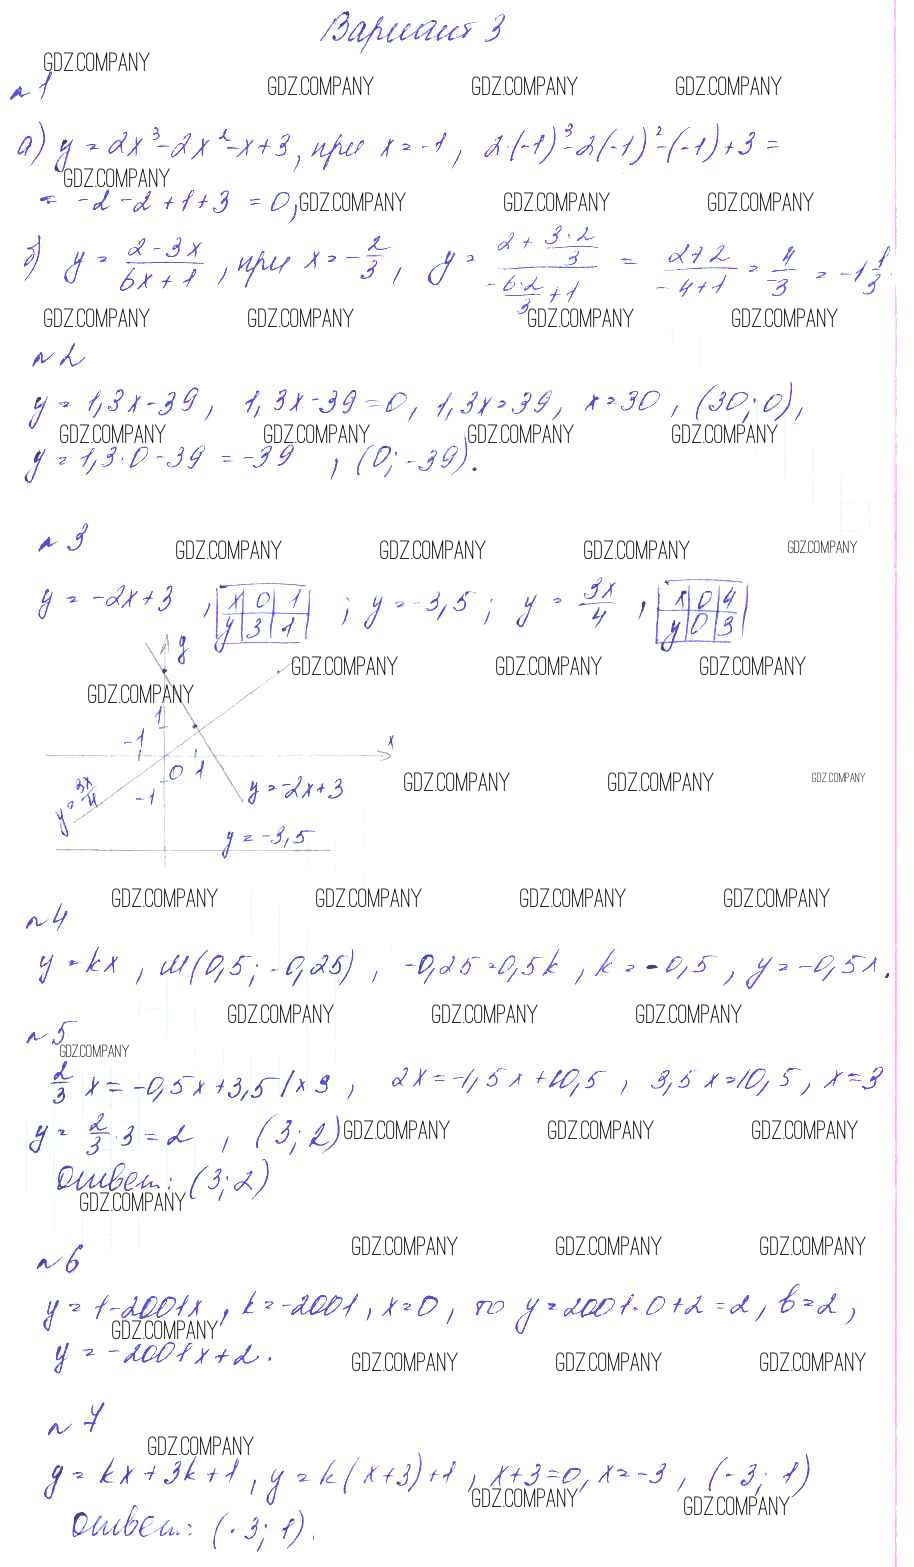 Вариант 3
GDZ.COMPANY
№1
GDZ.COMPANY GDZ.COMPANY GDZ.COMPANY
а) y = 2x³ - 2x² - x + 3, при x = -1, 2·(-1)³ - 2(-1)² - (-1) + 3 =
GDZ.COMPANY
= -2 - 2 + 1 + 3 = 0, GDZ.COMPANY GDZ.COMPANY GDZ.COMPANY
б) y = (2-3x)/(6x+1), при x = -2/3, y = (2 + 3·2/3)/(-6·2/3 + 1) = (2+2)/(-4+1) = 4/-3 = -1 1/3
GDZ.COMPANY GDZ.COMPANY GDZ.COMPANY GDZ.COMPANY
№2
y = 1,3x - 39, 1,3x - 39 = 0, 1,3x = 39, x = 30, (30; 0),
GDZ.COMPANY GDZ.COMPANY GDZ.COMPANY GDZ.COMPANY
y = 1,3·0 - 39 = -39, (0; -39).
№3
GDZ.COMPANY GDZ.COMPANY GDZ.COMPANY GDZ.COMPANY
y = -2x + 3, x 0 1 ; y = -3,5; y = 3x/4, x 0 4
y 3 1 y 0 3
y
GDZ.COMPANY GDZ.COMPANY GDZ.COMPANY
GDZ.COMPANY
1
-1 x
0 1
GDZ.COMPANY GDZ.COMPANY GDZ.COMPANY
y = 3x/4 -1 y = -2x + 3
y = -3,5
GDZ.COMPANY GDZ.COMPANY GDZ.COMPANY GDZ.COMPANY
№4
y = kx, M(0,5; -0,25), -0,25 = 0,5k, k = -0,5, y = -0,5x.
GDZ.COMPANY GDZ.COMPANY GDZ.COMPANY
№5
GDZ.COMPANY
2/3 x = -0,5x + 3,5 /×3, 2x = -1,5x + 10,5, 3,5x = 10,5, x = 3
y = 2/3·3 = 2, (3; 2) GDZ.COMPANY GDZ.COMPANY GDZ.COMPANY
Ответ: (3; 2)
GDZ.COMPANY
GDZ.COMPANY GDZ.COMPANY GDZ.COMPANY
№6
y = 1 - 2001x, k = -2001, x = 0, то y = 2001·0 + 2 = 2, b = 2,
GDZ.COMPANY
y = -2001x + 2. GDZ.COMPANY GDZ.COMPANY GDZ.COMPANY
№7
GDZ.COMPANY
y = kx + 3k + 1, y = k(x+3) + 1, x + 3 = 0, x = -3, (-3; 1)
GDZ.COMPANY GDZ.COMPANY
Ответ: (-3; 1).